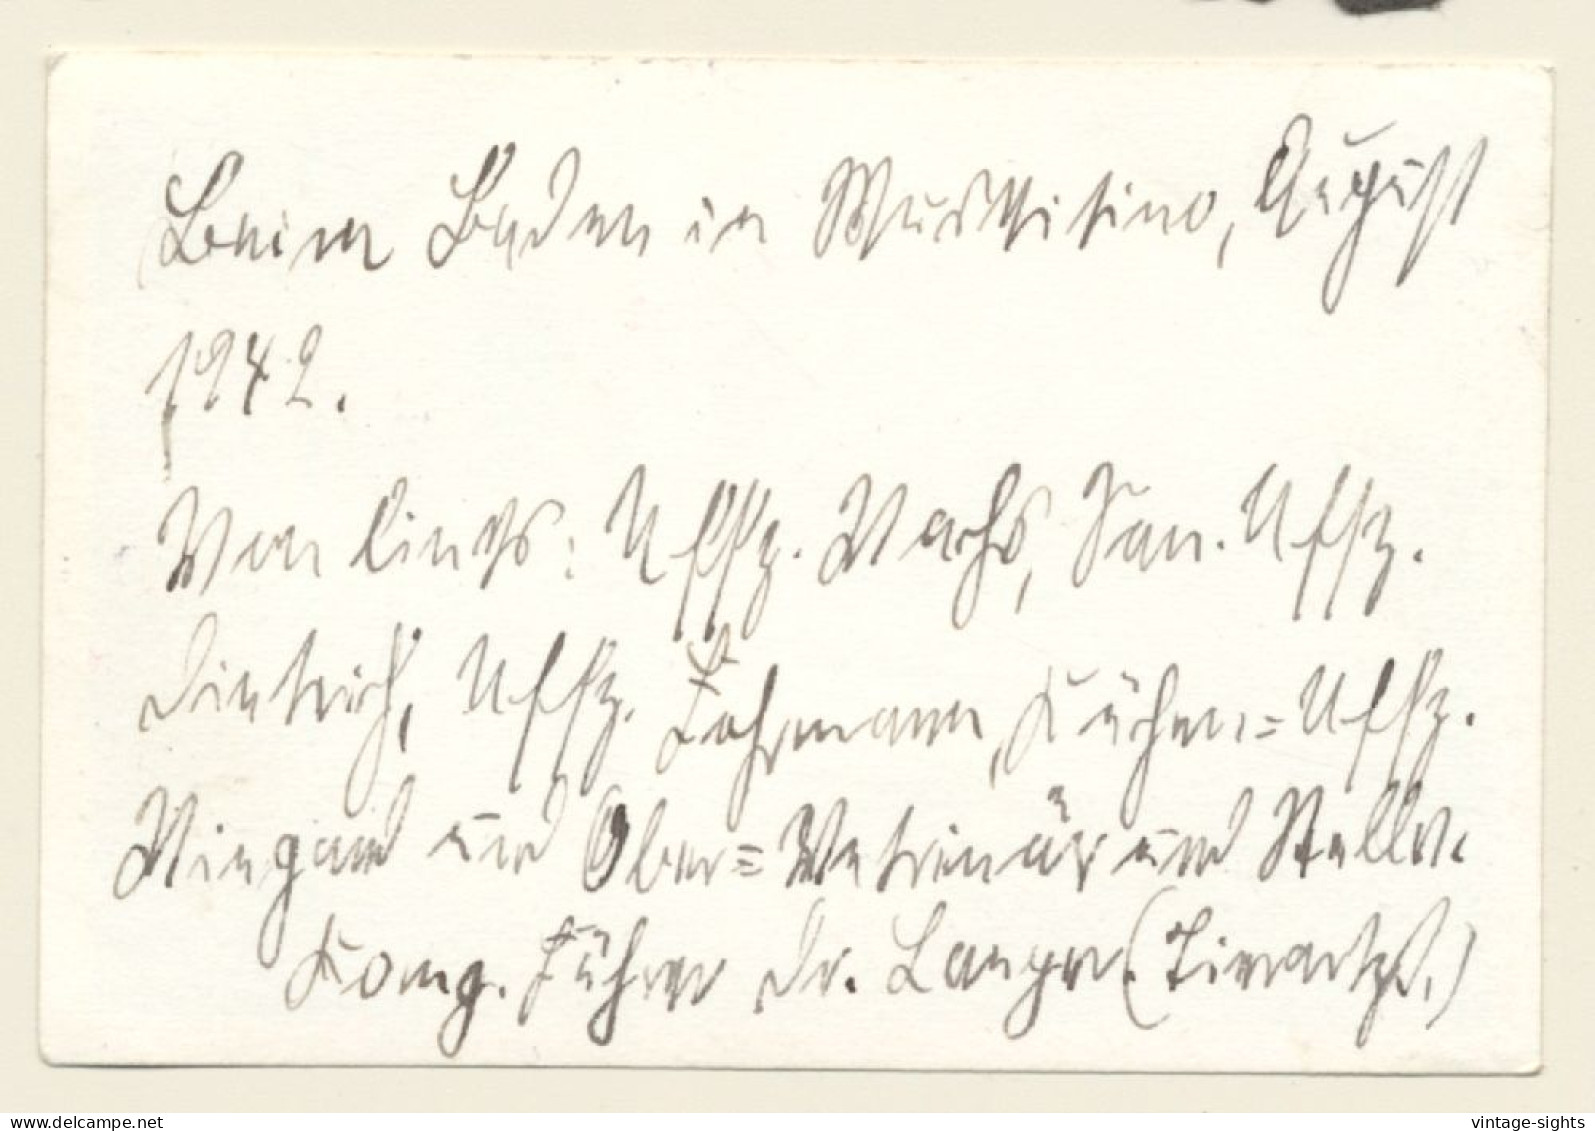 Beim Baden in Muschitino, August
1942.
Von links: Uffz. Wachs, San. Uffz.
Dietrich, Uffz. Fahrmann, Küchen=Uffz.
Wiegand und Ober=Veterinär und Stellv.
Komp. Führer Dr. Langer (Tierarzt.)
delcampe.net
vintage-sights